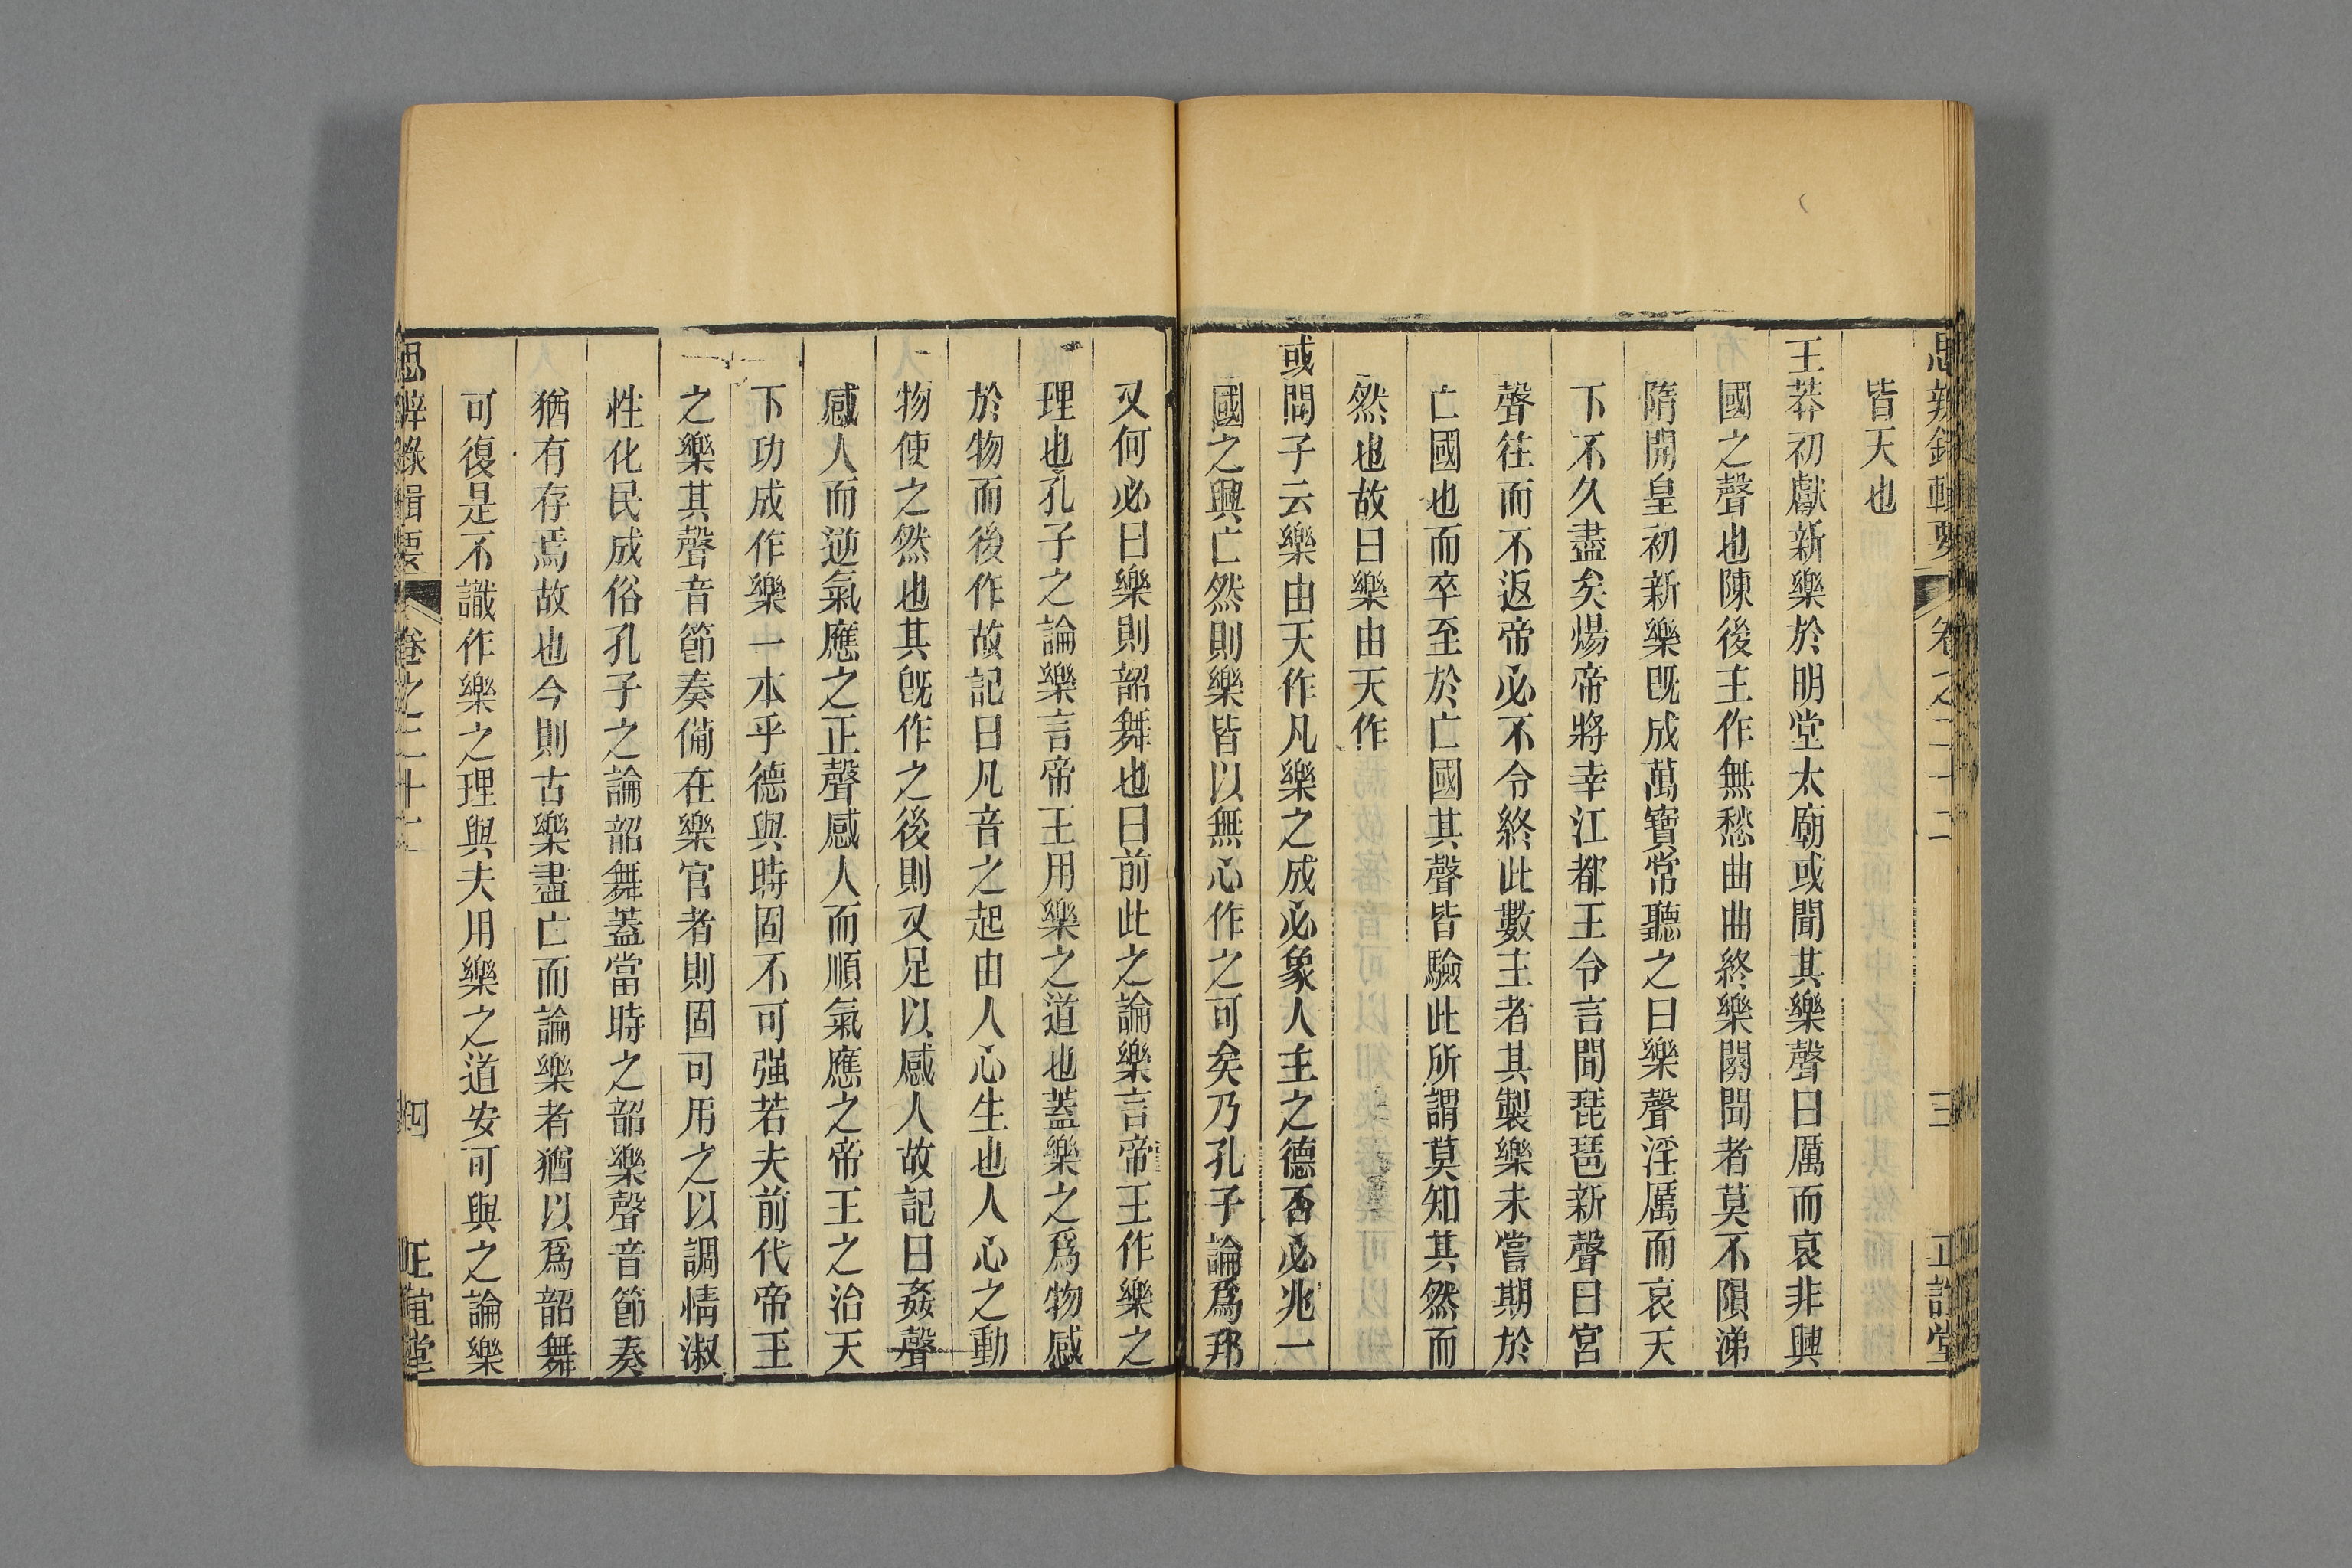 思辨錄輯要 卷之二十二 三 正誼堂
皆天也
王莽初獻新樂於明堂太廟或聞其樂聲曰厲而哀非興
國之聲也陳後主作無愁曲曲終樂闋聞者莫不隕涕
隋開皇初新樂既成萬寶常聽之曰樂聲淫厲而哀天
下不久盡矣煬帝將幸江都王令言聞琵琶新聲曰宮
聲往而不返帝必不令終此數主者其製樂未嘗期於
亡國也而卒至於亡國其聲皆驗此所謂莫知其然而
然也故曰樂由天作
或問子云樂由天作凡樂之成必象人主之德否必兆一
國之興亡然則樂皆以無心作之可矣乃孔子論為邦
又何必曰樂則韶舞也曰前此之論樂言帝王作樂之
理也孔子之論樂言帝王用樂之道也蓋樂之為物感
於物而後作故記曰凡音之起由人心生也人心之動
物使之然也其既作之後則又足以感人故記曰姦聲
感人而逆氣應之正聲感人而順氣應之帝王之治天
下功成作樂一本乎德與時固不可强若夫前代帝王
之樂其聲音節奏備在樂官者則固可用之以調情淑
性化民成俗孔子之論韶舞蓋當時之韶樂聲音節奏
猶有存焉故也今則古樂盡亡而論樂者猶以爲韶舞
可復是不識作樂之理與夫用樂之道安可與之論樂
思辨錄輯要 卷之二十二 四 正誼堂